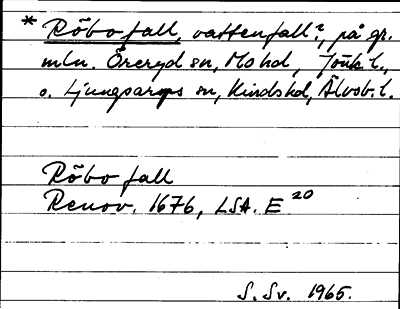 * Rõbo fall, vattenfall?, på gr.
mln. Öreryd sn, Mo hd, Jönk. l.,
o. Ljungsarps sn, Kinds hd, Älvsb. l.
Rõbo fall
Renov. 1676, LSA. E 20
S. Sv. 1965.